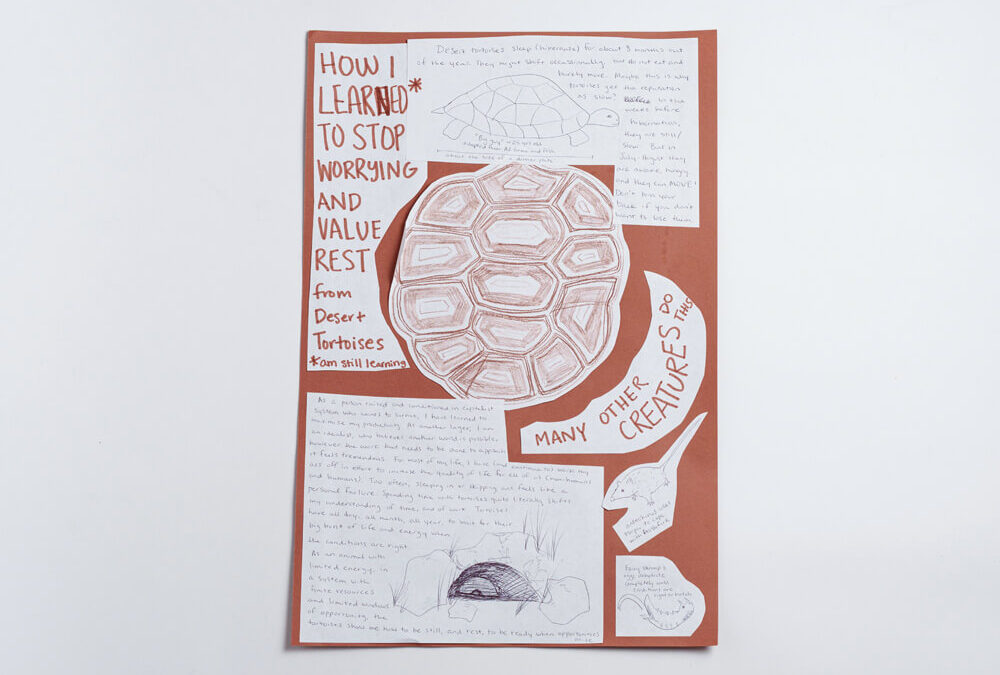 HOW I
LEARNED*
TO STOP
WORRYING
AND
VALUE
REST
from
Desert
Tortoises
*am still learning
Desert tortoises sleep (hibernate) for about 9 months out
of the year. They might shift occasionally but do not eat and
barely move. Maybe this is why
tortoises get the reputation
as slow? In the
weeks before
hibernation,
they are still/
slow. But in
July-August they
are awake, hungry
and they can MOVE!
Don't turn your
back if you don't
want to lose them
"Big guy"
adapted from AZ Game and Fish
about the size of a dinner plate
MANY OTHER CREATURES DO THIS
As a person raised and conditioned in capitalist
system who wants to survive, I have learned to
maximize my productivity. As another layer, I am
an idealist, who believes another world is possible,
however the work that needs to be done to approach
it feels tremendous. For most of my life, I have (and continue to) work my
ass off in effort to increase the quality of life for all of us (more-than-humans
and humans). Too often, sleeping in or skipping out feels like a
personal failure. Spending time with tortoises quite literally shifts
my understanding of time, and of work. Tortoises
have all day, all month, all year, to wait for their
big burst of life and energy when
the conditions are right.
As an animal with
limited energy, in
a system with
finite resources
and limited windows
of opportunity, the
tortoises show me how to be still, and rest, to be ready when opportunities
Fairy shrimp's
eggs dehydrate
completely until
conditions are
right